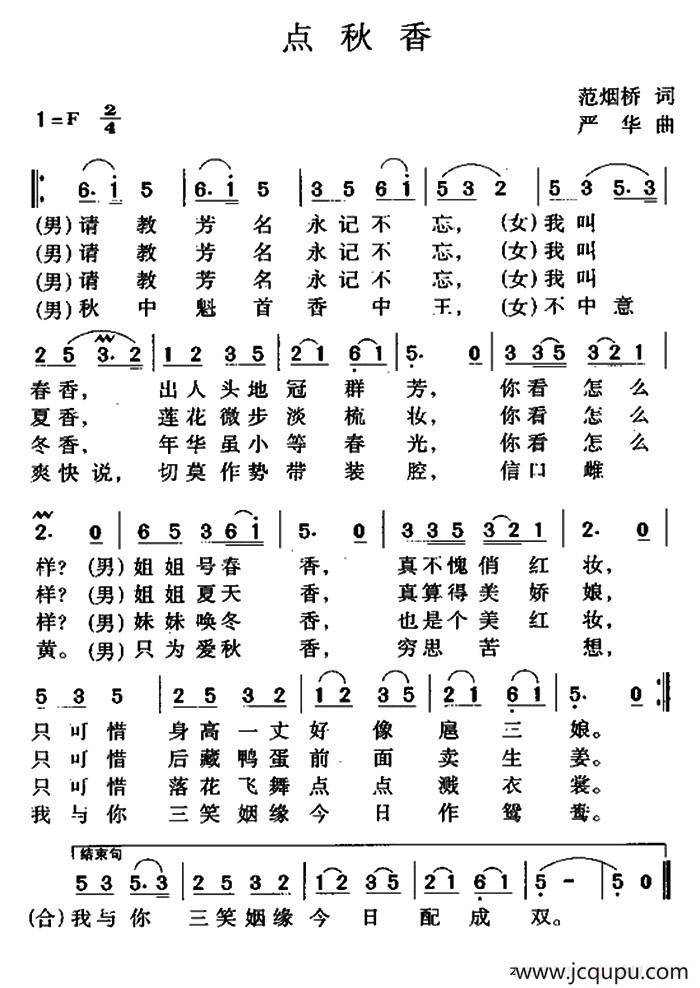 点秋香
范烟桥 词
1=F 2/4
严华 曲
6. i 5 6. i 5 3 5 6 i 5 3 2 5 3 5. 3
(男)请教芳名永记不忘，(女)我叫
(男)请教芳名永记不忘，(女)我叫
(男)请教芳名永记不忘，(女)我叫
(男)秋中魁首香中王，(女)不中意
2 5 3. 2 1 2 3 5 2 1 6 1 5. 0 3 3 5 3 2 1
春香，出人头地冠群芳，你看怎么
夏香，莲花微步淡梳妆，你看怎么
冬香，年华虽小等春光，你看怎么
爽快说，切莫作势带装腔，信口雌
2. 0 6 5 3 6 i 5. 0 3 3 5 3 2 1 2. 0
样？(男)姐姐号春香，真不愧俏红妆，
样？(男)姐姐夏天香，真算得美娇娘，
样？(男)妹妹唤冬香，也是个美红妆，
黄。(男)只为爱秋香，穷思苦想，
5 3 5 2 5 3 2 1 2 3 5 2 1 6 1 5. 0
只可惜身高一丈好像扈三娘。
只可惜后藏鸭蛋前面卖生姜。
只可惜落花飞舞点点溅衣裳。
我与你三笑姻缘今日作鸳鸯。
结束句
5 3 5. 3 2 5 3 2 1 2 3 5 2 1 6 1 5 - 5 0
(合)我与你三笑姻缘今日配成双。
www.jcqupu.com